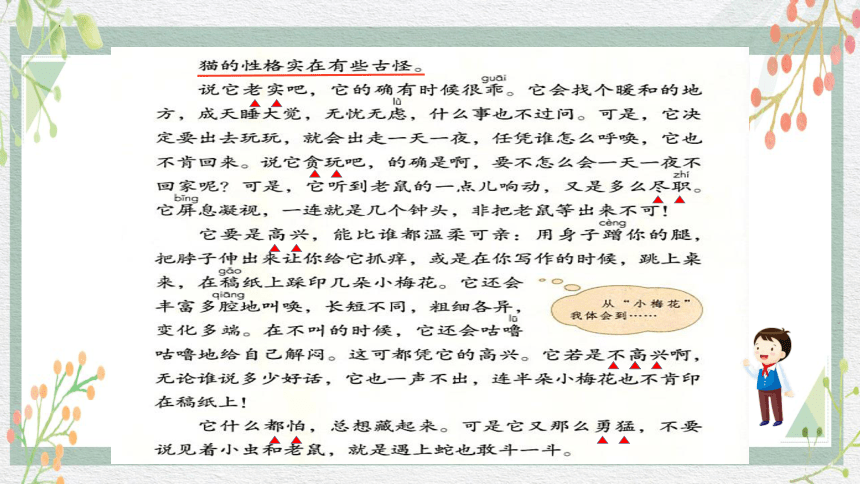 猫的性格实在有些古怪。
guāi
说它老实吧，它的确有时候很乖。它会找个暖和的地
lǜ
方，成天睡大觉，无忧无虑，什么事也不过问。可是，它决
定要出去玩玩，就会出走一天一夜，任凭谁怎么呼唤，它也
不肯回来。说它贪玩吧，的确是啊，要不怎么会一天一夜不
zhí
回家呢？可是，它听到老鼠的一点儿响动，又是多么尽职。
bǐng
它屏息凝视，一连就是几个钟头，非把老鼠等出来不可！
cèng
它要是高兴，能比谁都温柔可亲：用身子蹭你的腿，
把脖子伸出来让你给它抓痒，或是在你写作的时候，跳上桌
gǎo
来，在稿纸上踩印几朵小梅花。它还会
qiāng
丰富多腔地叫唤，长短不同，粗细各异，
lū
变化多端。在不叫的时候，它还会咕噜
咕噜地给自己解闷。这可都凭它的高兴。它若是不高兴啊，
无论谁说多少好话，它也一声不出，连半朵小梅花也不肯印
在稿纸上！
它什么都怕，总想藏起来。可是它又那么勇猛，不要
说见着小虫和老鼠，就是遇上蛇也敢斗一斗。
从“小梅花”
我体会到……